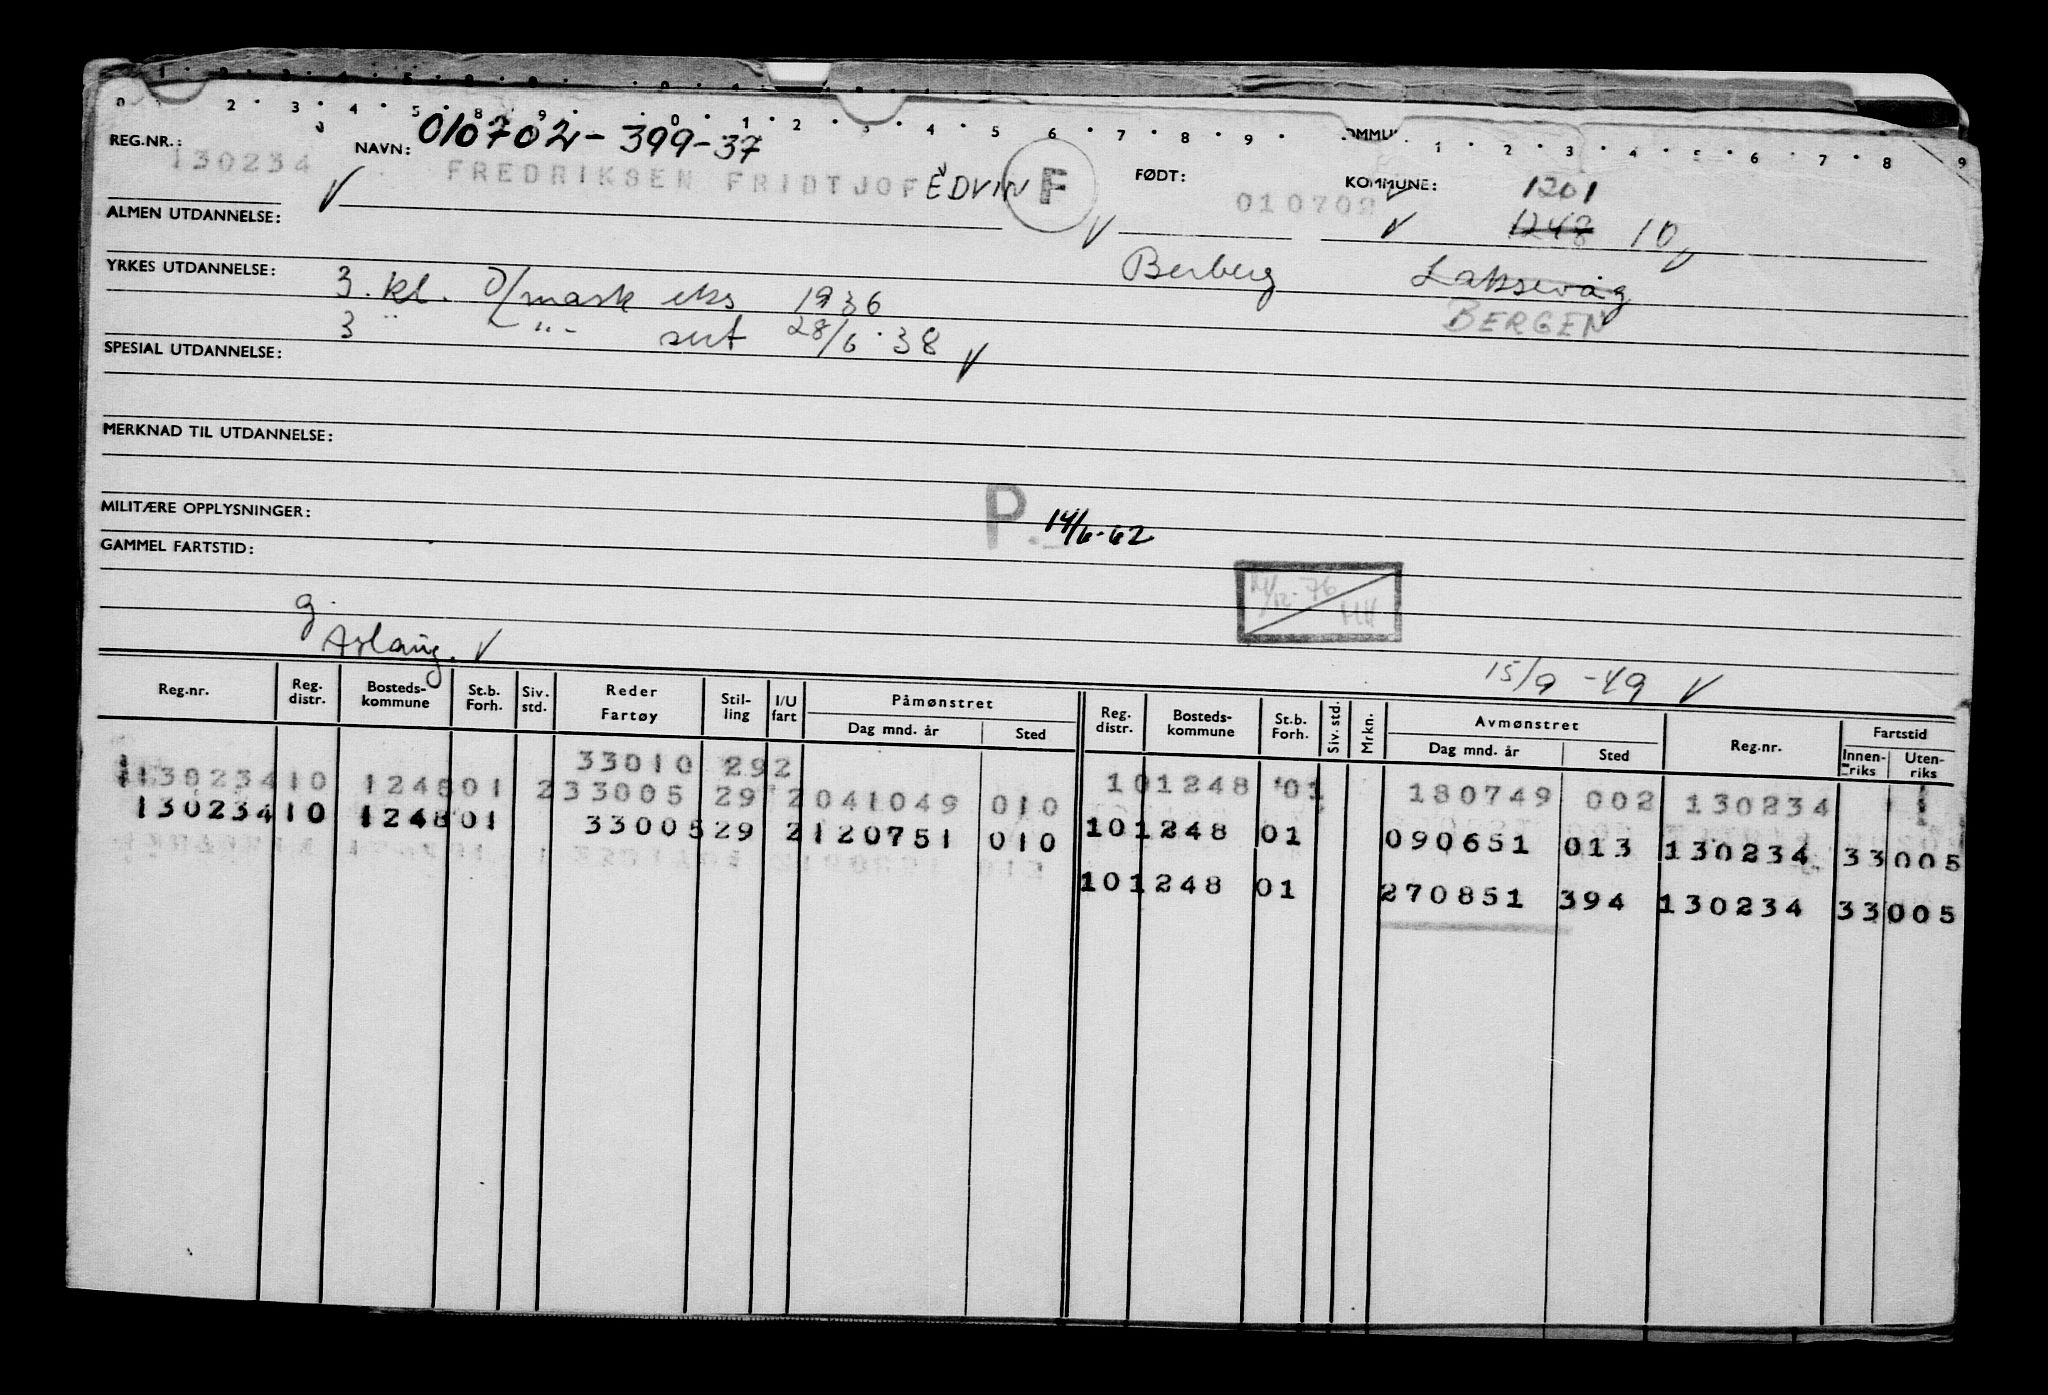 REG.NR.: 130234 NAVN: 010702-399-37
FREDRIKSEN FRIDTJOF EDVIN F FØDT: 010702 KOMMUNE: 1201
1248 10
ALMEN UTDANNELSE:
Berberg Laksevåg
YRKES UTDANNELSE: 3. kl. D/mask eks 1936
BERGEN
3 " - " - sert 28/6-38
SPESIAL UTDANNELSE:
MERKNAD TIL UTDANNELSE:
MILITÆRE OPPLYSNINGER: P. 14/6-62
GAMMEL FARTSTID:
14/12-76
g. Aslaug.
15/9-49
Reg.nr. Reg. distr. Bosteds-kommune St.b. Forh. Siv. std. Reder Fartøy Stil-ling I/U fart Påmønstret Dag mnd. år Sted Reg. distr. Bosteds-kommune St.b. Forh. Siv. std. Mrkn. Avmønstret Dag mnd. år Sted Reg.nr. Fartstid Innen-riks Uten-riks
33010 29 2
130234 10 1248 01 2 33005 29 2 041049 010 10 1248 01 180749 002 130234
130234 10 1248 01 33005 29 2 120751 010 10 1248 01 090651 013 130234 33005
10 1248 01 270851 394 130234 33005